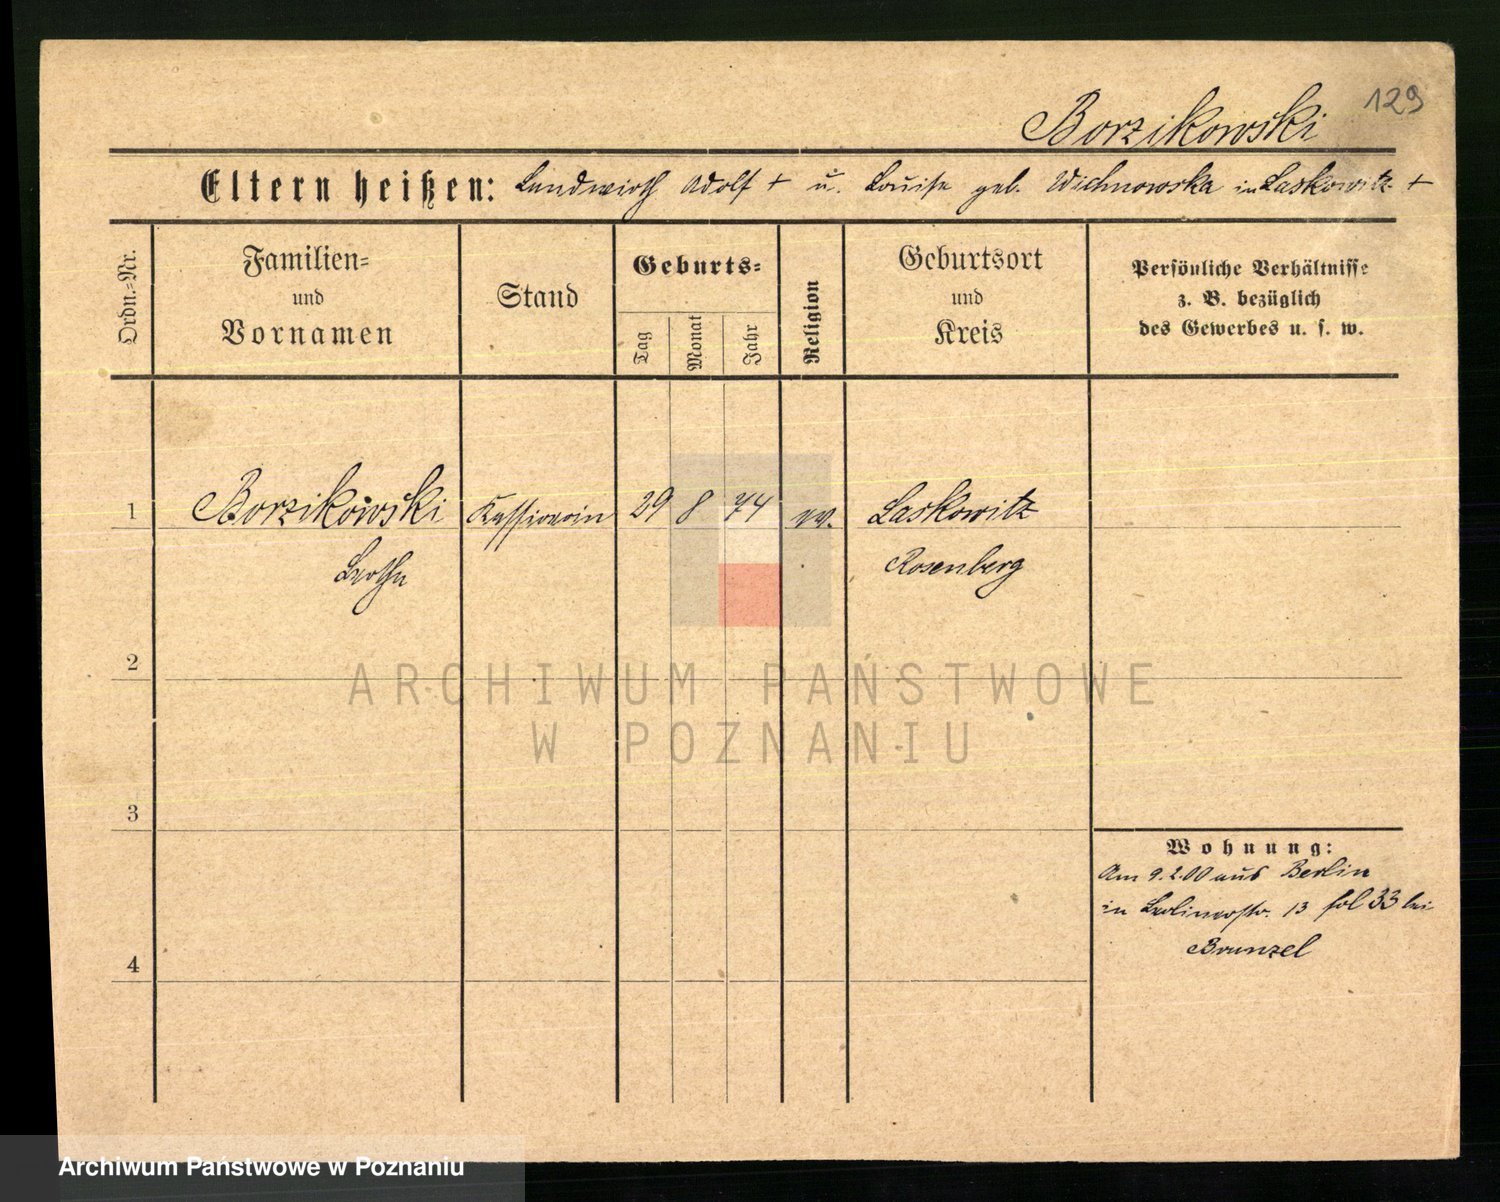 129
Borzikowski
Eltern heißen: Landwirth Adolf + u. Louise geb. Wichnowska in Laskowitz +
Ordn.-Nr.
Familien- und Vornamen
Stand
Geburts-
Tag
Monat
Jahr
Religion
Geburtsort und Kreis
Persönliche Verhältnisse z. B. bezüglich des Gewerbes u. s. w.
1 Borzikowski Kassiererin 29 8 74 ev. Laskowitz
Bertha Rosenberg
2
ARCHIWUM PAŃSTWOWE
W POZNANIU
3
Wohnung:
Am 9.2.00 aus Berlin
in Berlinerstr. 13 fol 33 bei
Brunzel
4
Archiwum Państwowe w Poznaniu